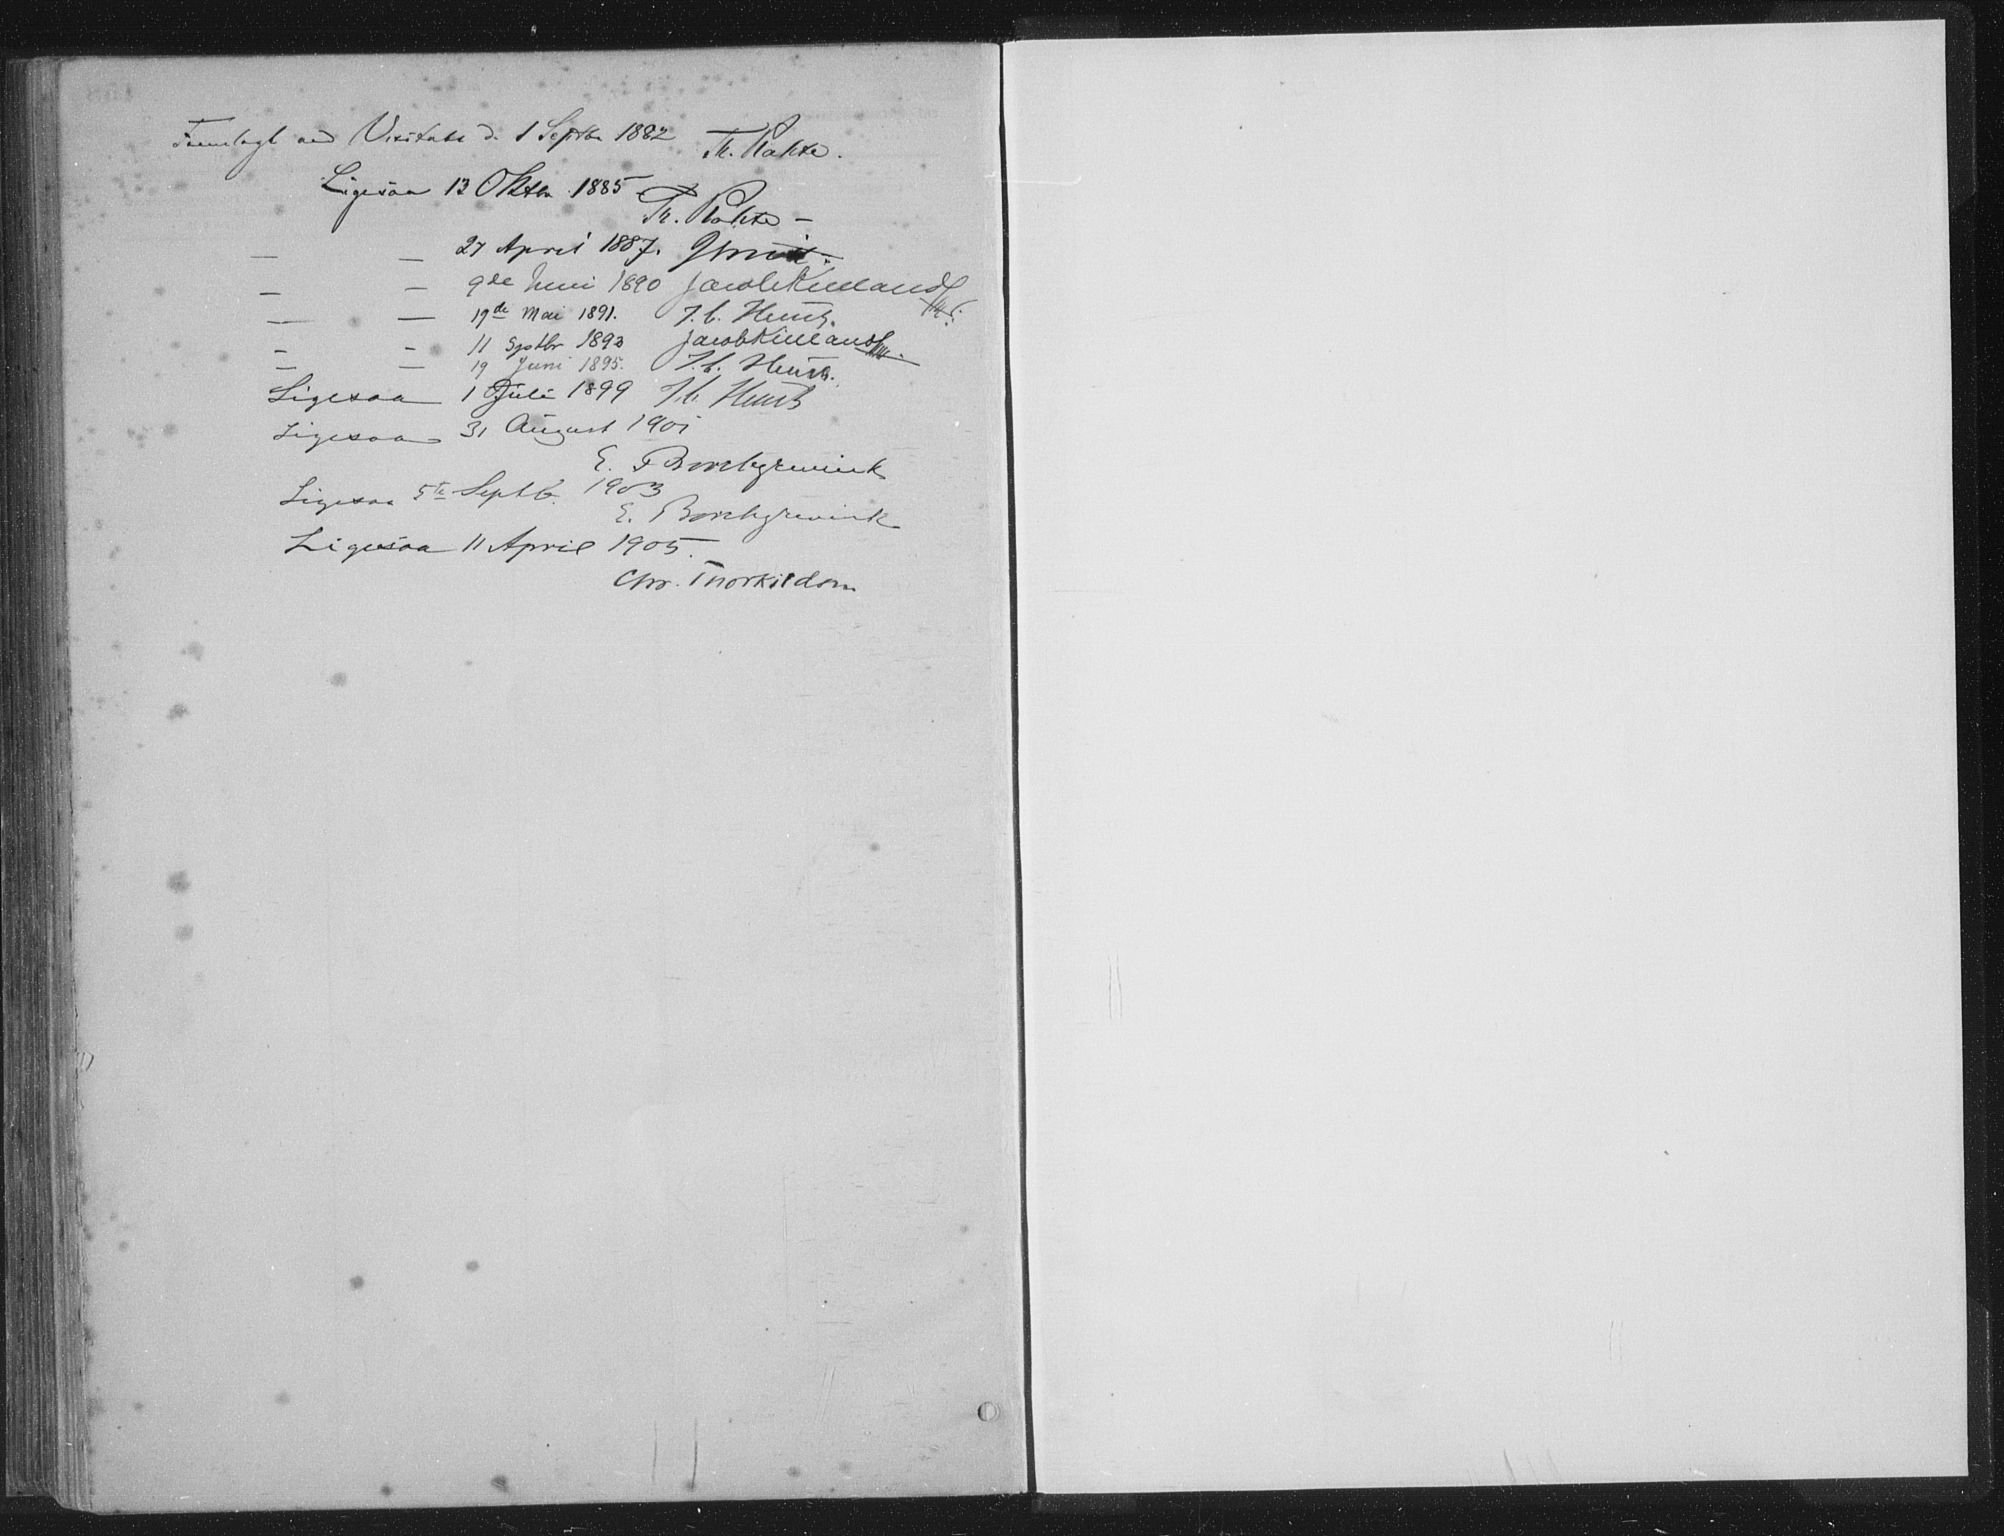 Fremlagt ved Visitats d. 1 Septbr 1882 Th. Rahte.
Ligesaa 13 Oktbr 1885
Th. Rahte —
— — 27 April 1887.
— — 9de Juni 1890 Jacob Kielland
— — 19de Mai 1891. J. C. Heuch.
— — 11 Septbr 1893 Jacob Kielland
— — 19 Juni 1895. J. C. Heuch.
Ligesaa 1 Juli 1899 J C Heuch
Ligesaa 31 August 1901
E. Borchgrevink
Ligesaa 5te Septb. 1903
E. Borchgrevink
Ligesaa 11 April 1905.
Chr. Thorkildsen